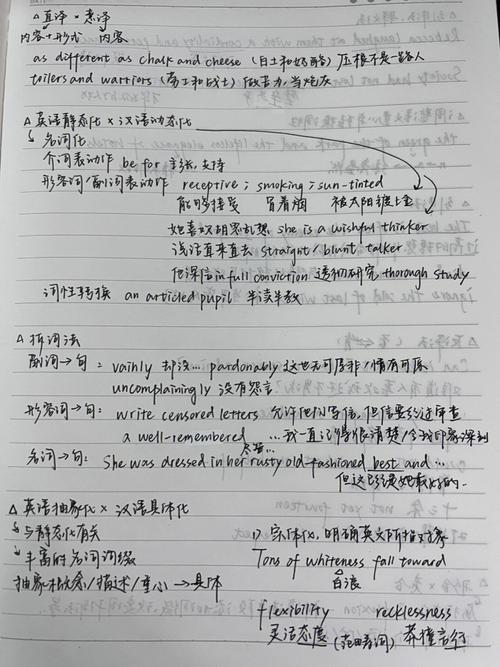 △ 直译 × 意译
内容+形式 内容
as different as chalk and cheese (白土和奶酪) 压根不是一路人
toilers and warriors (劳工和战士) 做苦力,当炮灰
△ 英语静态化 × 汉语动态化
↳ 名词化
介词表动作 be for 主张,支持
形容词/副词表动作 receptive ; smoking ; sun-tinted
能够接受 冒着烟 被太阳镀上金
她喜欢胡思乱想 she is a wishful thinker
说话直来直去 straight / blunt talker
他深信 in full conviction 透彻研究 thorough study
词性转换 an articled pupil 半读半教
△ 拆词法
副词→句: vainly 却没... pardonably 这也无可厚非/情有可原
uncomplainingly 没有怨言
形容词→句: write censored letters 允许他们写信,但信要经过审查
a well-remembered ...我一直记得很清楚/令我印象深刻
名词→句: She was dressed in her rusty old-fashioned best and ...
尽管...
但这已经是她最好的.
△ 英语抽象化 × 汉语具体化
↳ 与静态化有关 1) 实体化,明确英文所指对象
↳ 丰富的名词词缀 Tons of whiteness fall toward
抽象概念/描述/重心→具体 白浪
flexibility recklessness
灵活态度 (范畴词) 莽撞言行